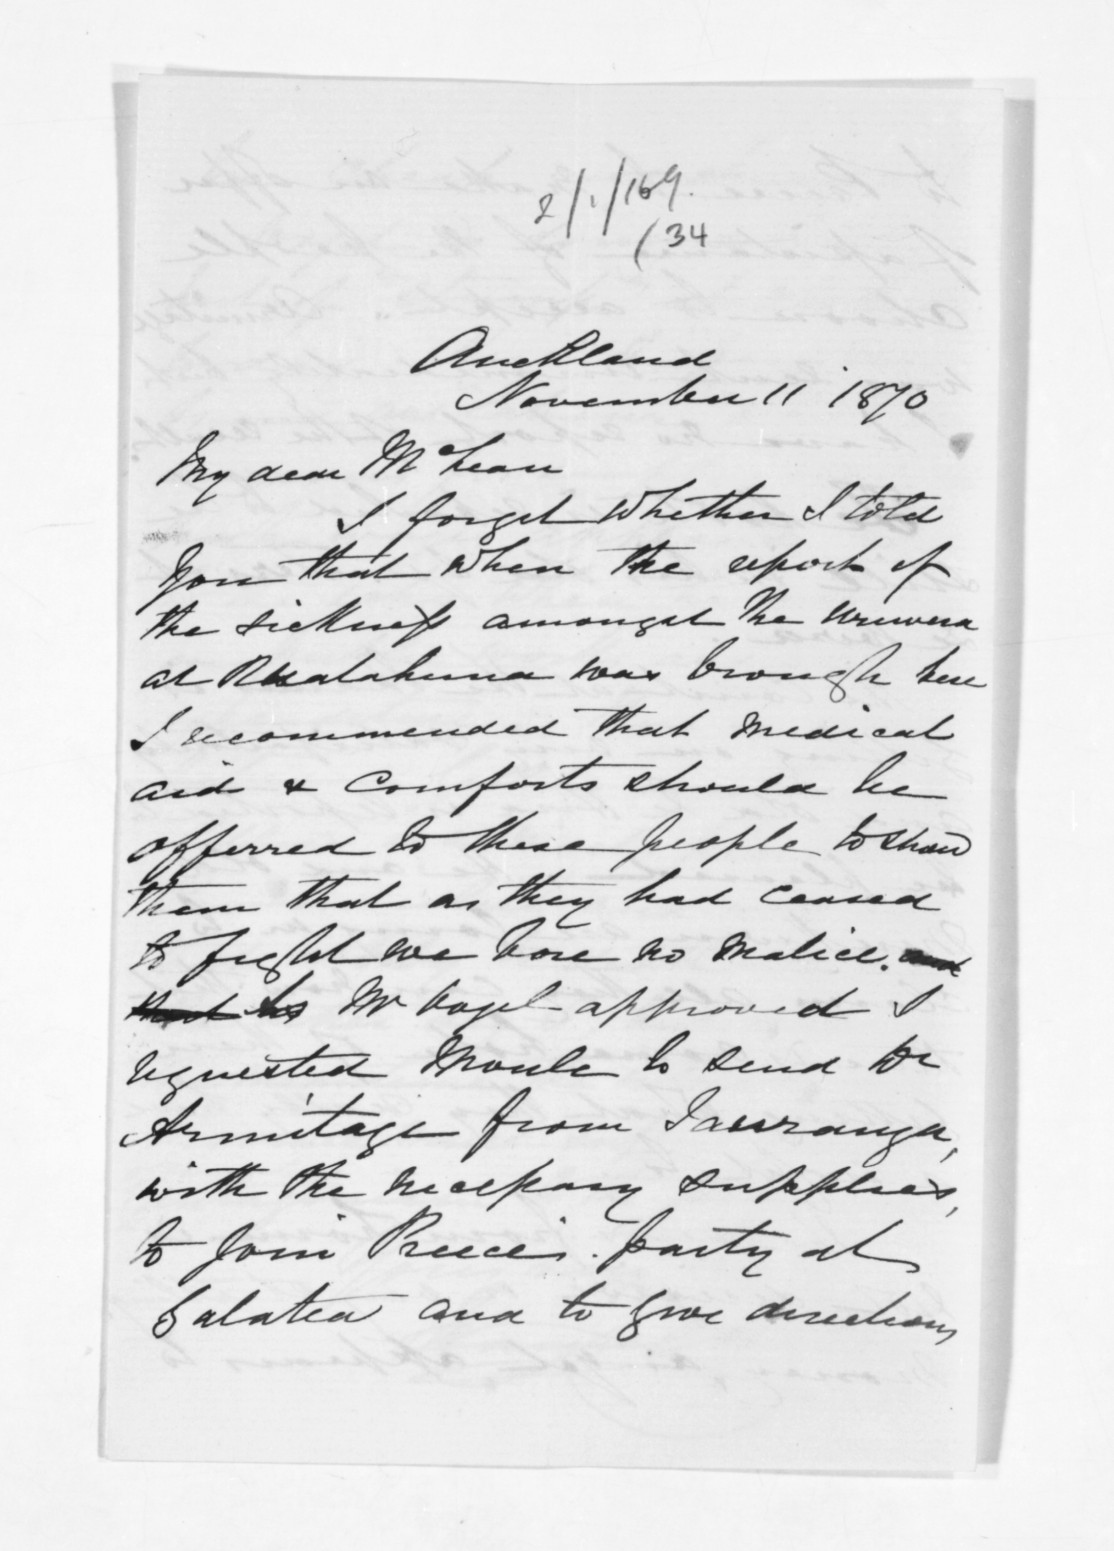 2/1/169.
/34
Auckland
November 11 1870
My dear McLean
I forget whether I told
you that when the report of
the sickness amongst the Urewera
at Ruatahuna was brough here
I recommended that medical
aid & comforts should be
offerred to these people to show
them that as they had ceased
to fight we bore no malice. and
Mr Vogel approved I
requested Moule to send Dr
Armitage from Tauranga,
with the necessary supplies,
to join Preece's party at
Galatea and to give directions